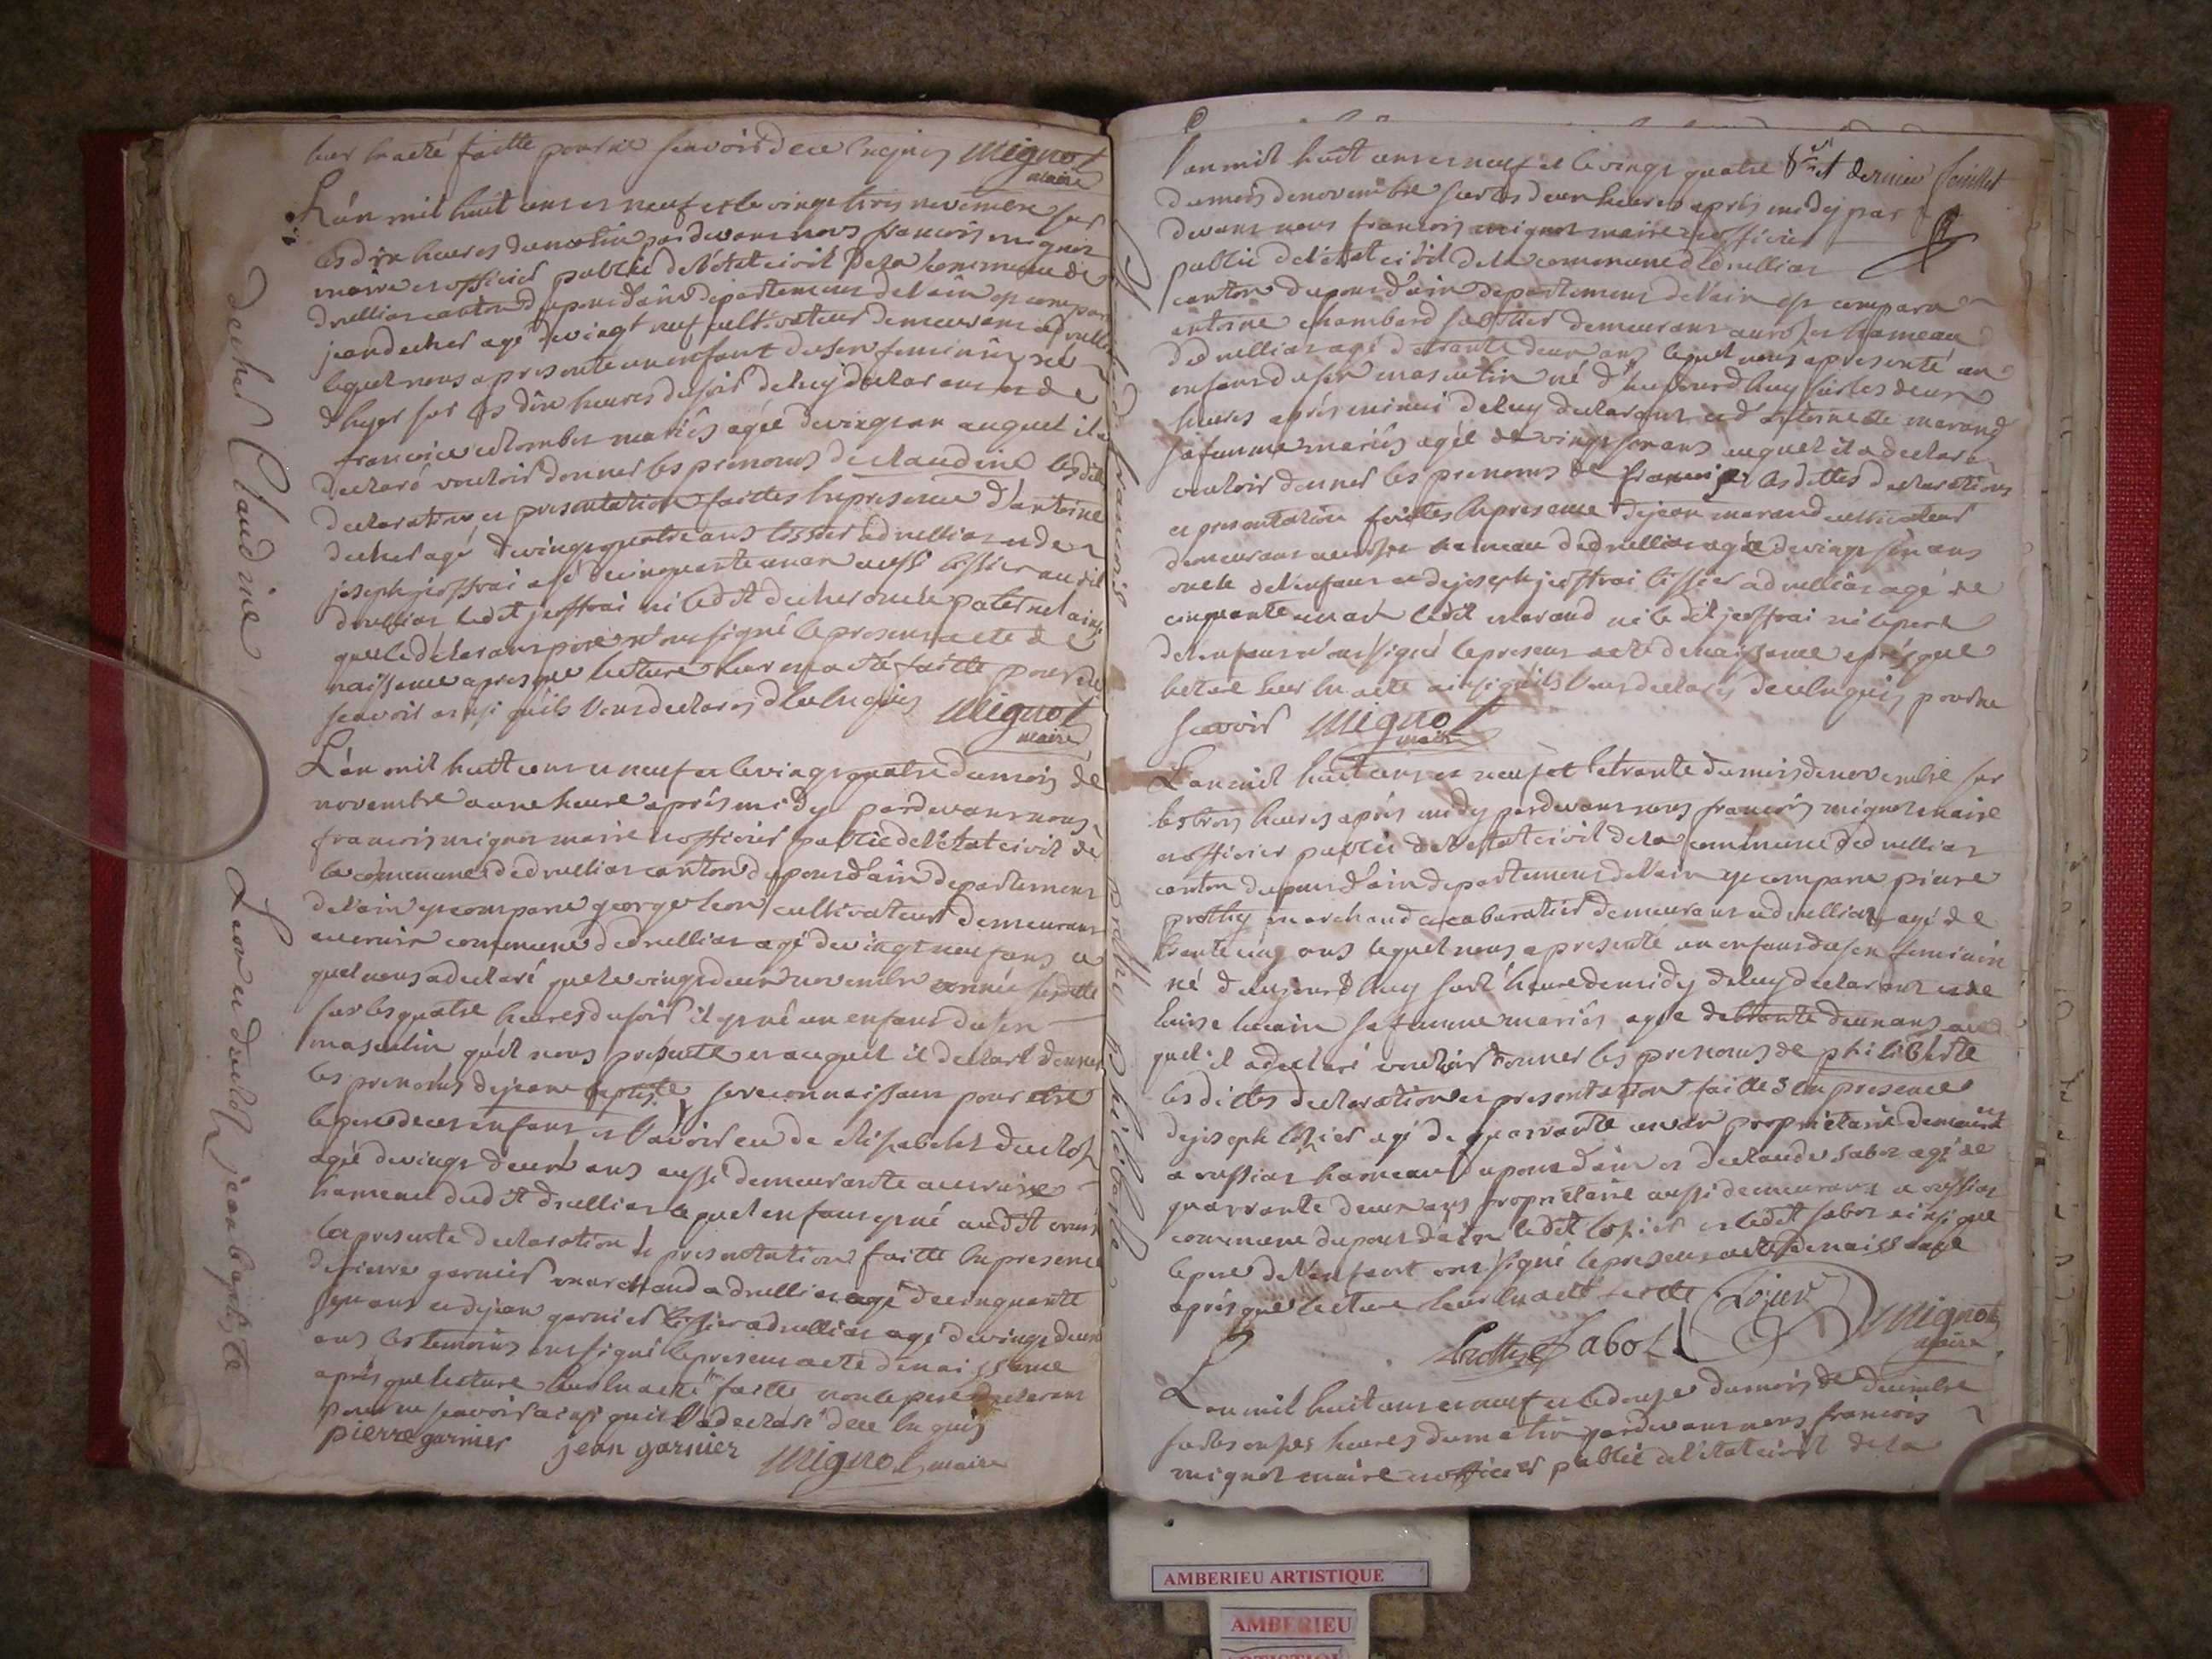 leur en a été faitte pour ne scavoir de ce enquis Mignot
maire
L'an mil huit cent et neuf et le vingt trois novembre sur
les dix heures du matin pardevant nous francois mignot
maire et officier public de l'état civil de la commune de
druillias canton du pont d'ain departement de l'ain est comparu
jean decher agé de vingt neuf cultivateur demeurant a druillias
lequel nous a presenté un enfant du sex feminin né
d'hyer sur les dix heures du soir de luy declarant et de
francoise colombet mariés agée de vingt un an auquel il a
declaré vouloir donner les prenoms de claudine lesdittes
declaration et presentation faittes en presence d'antoine
decher agé de vingt quatre ans tissier a druillias et de
joseph jeoffrai agé de cinquante un an aussi tissier audit
druillias ledit jeoffrai ni ledit decher oncle paternel ainsi
que le déclarant pere n'ont signé le present acte de
naissance apres que lecture leur en a été faitte pour ne
scavoir ainsi qu'ils l'ont declarés de ce enquis Mignot
maire
decher Claudine
L'an mil huit cent et neuf et le vingt quatre du mois de
novembre a une heure après midy pardevant nous
francois mignot maire et officier public de l'état civil de
la commune de druillias canton du pont d'ain departement
de l'ain est comparu george leon cultivateur demeurant
commune de druillias agé de vingt neuf ans le
quel nous a declaré que le vingt deux novembre année susditte
sur les quatre heures du soir il est né un enfant du sex
masculin qu'il nous presente et auquel il declare donner
les prenoms de jean baptiste se reconnaissant pour etre
le pere de cet enfant et l'avoir eu de elisabeth
agée de vingt deux ans aussi demeurante
hameau dudit druillias lequel enfant est né audit
la presente declaration et presentation faitte en presence
de pierre garnier marchand a druillias agé de cinquante
sept ans et de jean garnier tissier a druillias agé de vingt deux
ans les temoins ont signé le present acte de naissance
après que lecture leur en a été faitte non le pere declarant
pour ne scavoir ainsi qu'il l'a declaré de ce enquis
pierre garnier jean garnier Mignot maire
Leon jean baptiste
L'an mil huit cent et neuf et le vingt quatre 8 et dernier feuillet
du mois de novembre sur les deux heures après midy par
devant nous francois mignot maire et officier
public de l'état civil de la commune de druillias
canton du pont d'ain departement de l'ain est comparu
antoine chambard sabotier demeurant hameau
de druillias agé de trante deux ans lequel nous a presenté un
enfant du sex masculin né d'aujourd'huy sur les deux
heures après minui de luy declarant et d'antoinette marand
sa femme mariés agée de vingt six ans auquel il a declaré
vouloir donner les prenoms de francois lesdittes declarations
et presentation faittes en presence de jean marand cultivateur
demeurant hameau de druillias agé de vingt six ans
oncle de l'enfant et de joseph jeoffrai tissier a druillias agé de
cinquante un an ledit marand ni ledit jeoffrai ni le pere
de l'enfant n'ont signé le present acte de naissance après que
lecture leur en a été ainsi qu'ils l'ont declarés de ce enquis pour ne
scavoir Mignot
maire
francois
L'an mil huit cent et neuf et le trante du mois de novembre sur
les trois heures après midy pardevant nous francois mignot maire
et officier public de l'état civil de la commune de druillias
canton du pont d'ain departement de l'ain est comparu pierre
prothy marchand et cabaratier demeurant a druillias agé de
trante cinq ans lequel nous a presenté un enfant du sex feminin
né d'aujourd'huy sur l'heure de midy de luy declarant et de
luise sa femme mariés agée de trante deux ans au
quel il a declaré vouloir donner les prenoms de philiberte
lesdittes declaration et presentation faittes en presence
de joseph lozier agé de quarrante un an proprietaire demeurant
a oussias hameau du pont d'ain et de claude sabot agé de
quarrante deux ans proprietaire aussi demeurant a oussias
commune du pont d'ain ledit lozier et ledit sabot ainsi que
le pere de l'enfant ont signé le present acte de naissance
après que lecture leur en a été faitte Lozier
Prothy Sabot Mignot
maire
prothy Philiberte
L'an mil huit cent et neuf et le douze du mois de decembre
sur les onzes heures du matin pardevant nous francois
mignot maire et officier public de l'état civil de la
AMBERIEU ARTISTIQUE
AMBERIEU
ARTISTIQUE